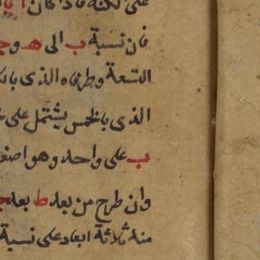 على لكنه فاذا كان ا
فان نسبة ب الى ه و ج
التسعة وطرفاه الذى بالك
الذى بالخمس يشتمل على
ب على واحد وهو اصغر
وان طرح من بعد ط بعد ج
منه ثلاثة ابعاد على نسبة